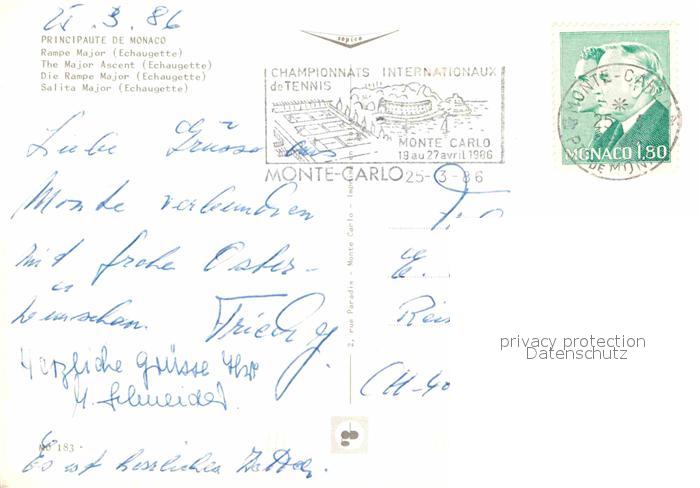 25.3.86
PRINCIPAUTE DE MONACO
Rampe Major (Echaugette)
The Major Ascent (Echaugette)
Die Rampe Major (Echaugette)
Salita Major (Echaugette)
sapica
CHAMPIONNATS INTERNATIONAUX
de TENNIS
MONTE CARLO
19 au 27 avril 1986
MONTE-CARLO 25-3-86
MONTE-CAR
DE MON
MONACO 1,80
Liebe Grüsse aus
Monte verbunden
mit frohen Oster-
wünschen.
Herzliche Grüsse Ihr
Schneider.
Es ist herrliches
2, rue Paradis - Monte Carlo - Imp
Fr
E.
Reis
CH-40
privacy protection
Datenschutz
MO 183